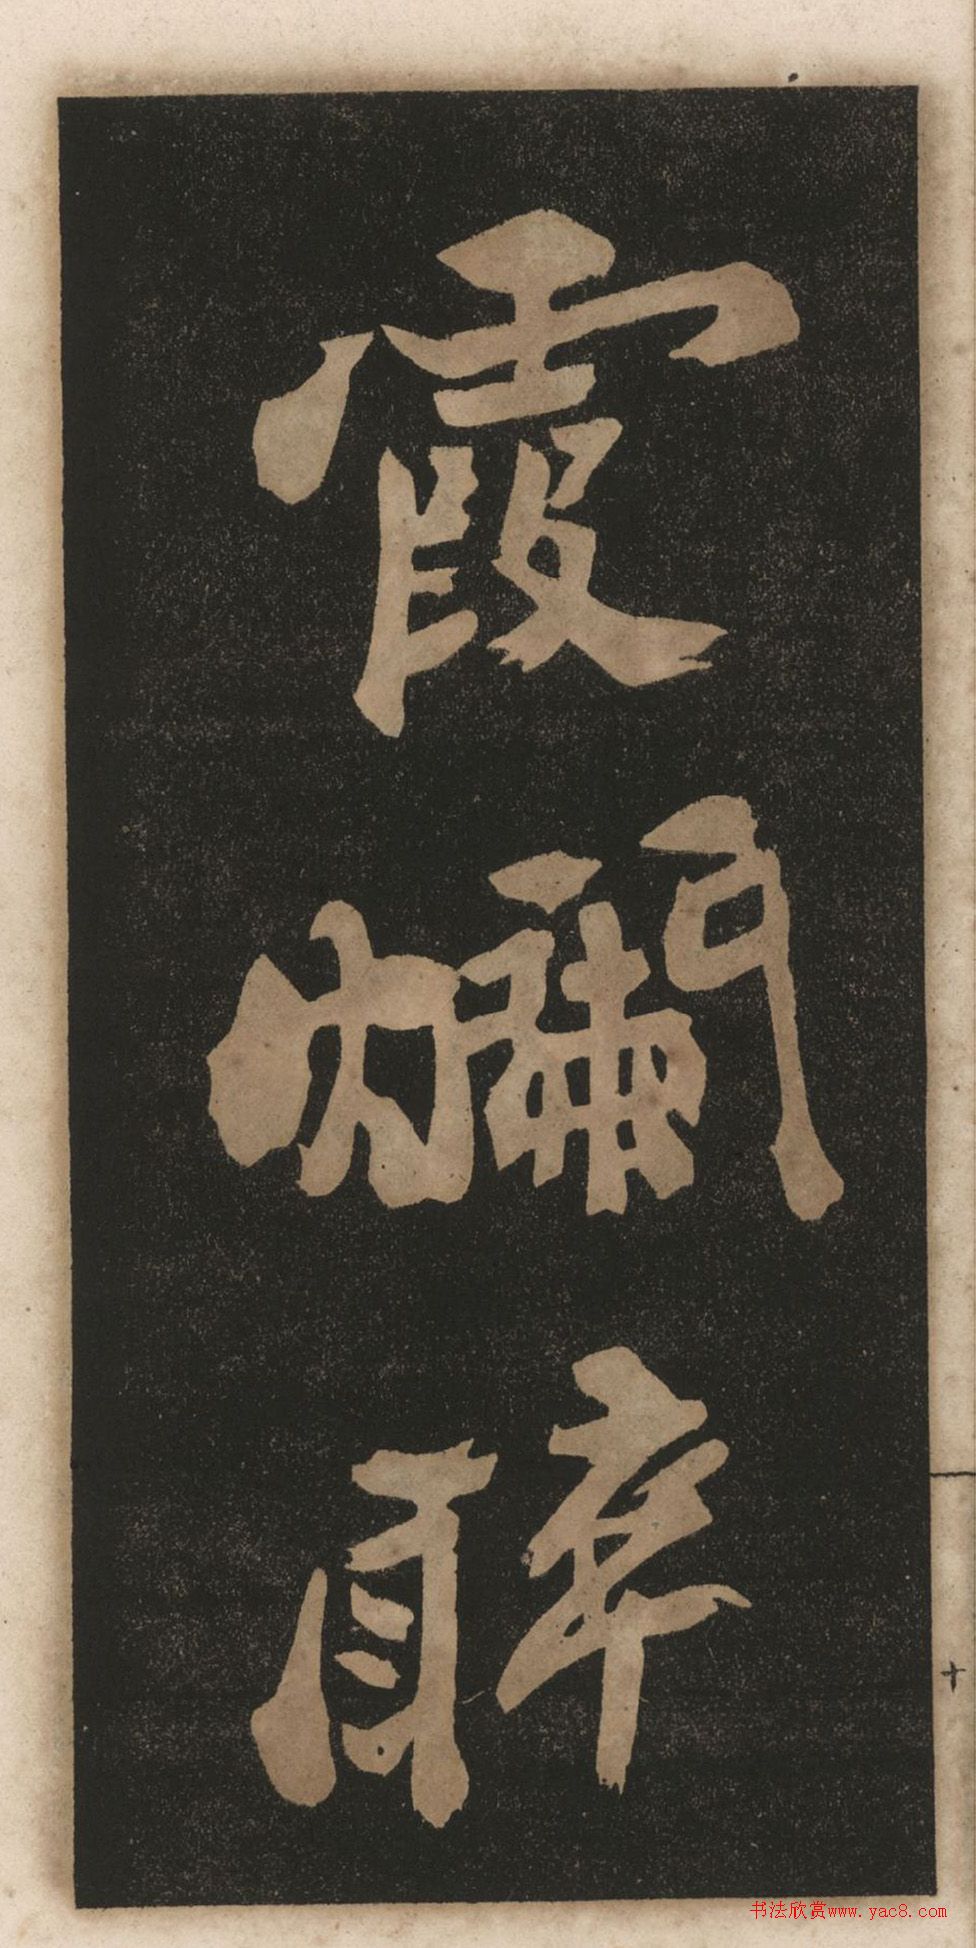 霞爛醉
书法欣赏www.yac8.com